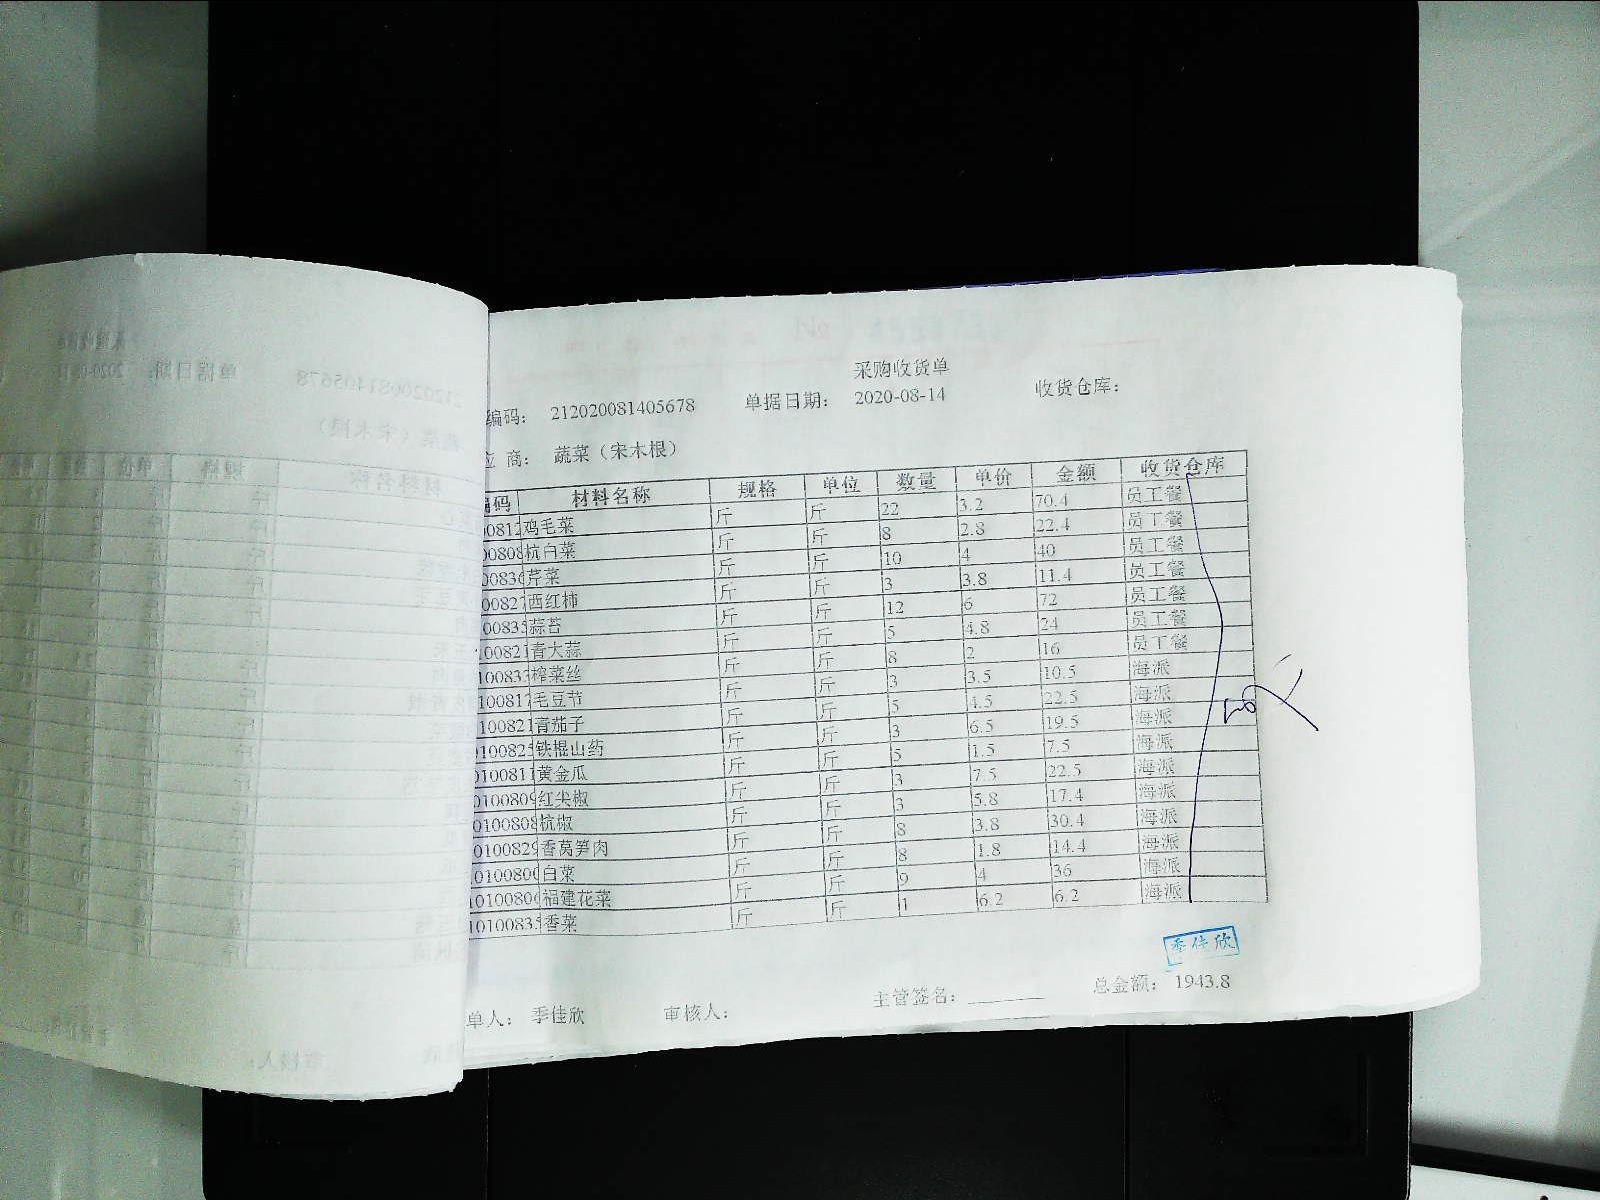 采购收货单
编码: 212020081405678 单据日期: 2020-08-14 收货仓库:
应 商: 蔬菜（宋木根）
编码 材料名称 规格 单位 数量 单价 金额 收货仓库
00812 鸡毛菜 斤 斤 22 3.2 70.4 员工餐
00808 杭白菜 斤 斤 8 2.8 22.4 员工餐
00836 芹菜 斤 斤 10 4 40 员工餐
00827 西红柿 斤 斤 3 3.8 11.4 员工餐
00835 蒜苔 斤 斤 12 6 72 员工餐
00821 青大蒜 斤 斤 5 4.8 24 员工餐
100833 榨菜丝 斤 斤 8 2 16 员工餐
100817 毛豆节 斤 斤 3 3.5 10.5 海派
100821 青茄子 斤 斤 5 4.5 22.5 海派
0100825 铁棍山药 斤 斤 3 6.5 19.5 海派
0100811 黄金瓜 斤 斤 5 1.5 7.5 海派
0100809 红尖椒 斤 斤 3 7.5 22.5 海派
0100808 杭椒 斤 斤 3 5.8 17.4 海派
0100829 香莴笋肉 斤 斤 8 3.8 30.4 海派
010080 白菜 斤 斤 8 1.8 14.4 海派
1010080 福建花菜 斤 斤 9 4 36 海派
10100835 香菜 斤 斤 1 6.2 6.2 海派
季佳欣
单人: 季佳欣 审核人: 主管签名: 总金额: 1943.8